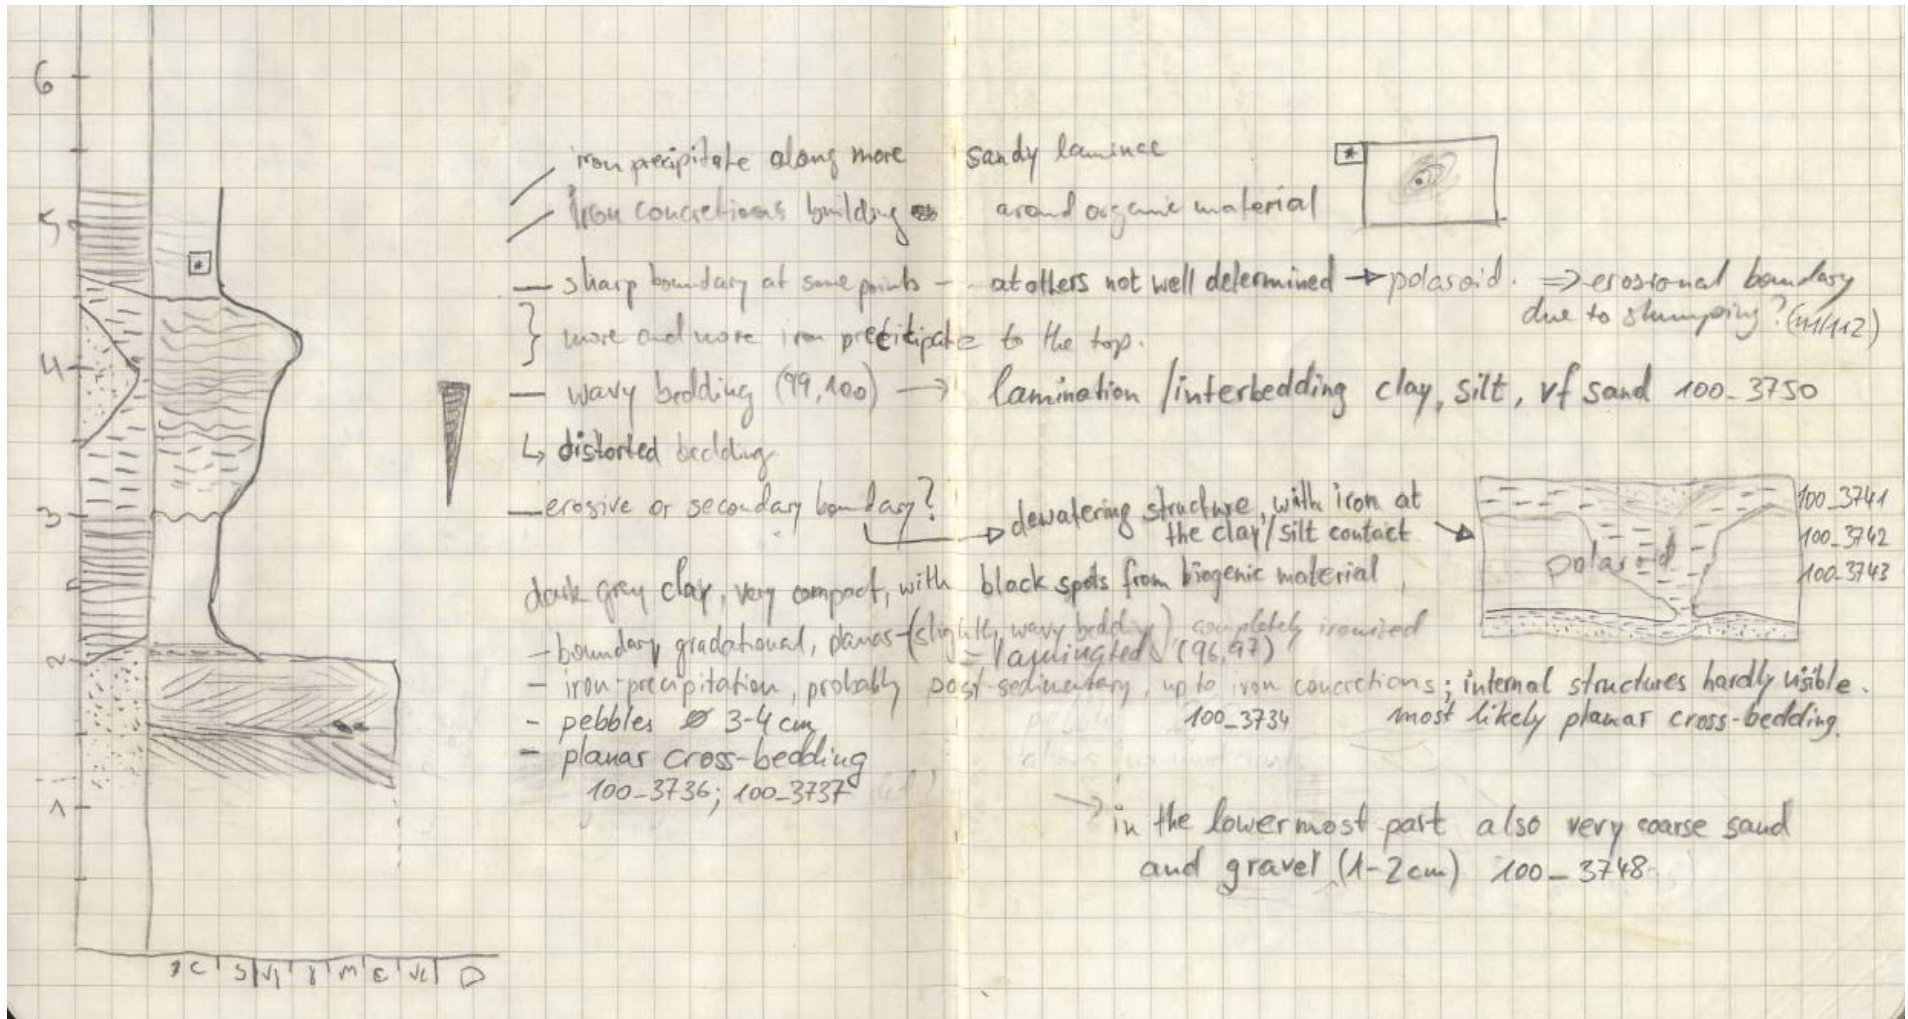 6
5
4
3
2
1
iron precipitate along more sandy laminae
iron concretions building around organic material
*
*
— sharp boundary at some points - at others not well determined → polaroid. ⇒ erosional boundary
due to slumping? (111/112)
} more and more iron precitipate to the top.
— wavy bedding (99,100) → lamination /interbedding clay, silt, vf sand 100_3750
↳ distorted bedding
— erosive or secondary boundary?
→ dewatering structure, with iron at
the clay/silt contact
polaroid
100_3741
100_3742
100_3743
dark grey clay, very compact, with black spots from biogenic material
- boundary gradational, planar (slightly wavy bedding) completely ironized
= laminated (96,97)
- iron-precipitation, probably post-sedimentary, up to iron concretions; internal structures hardly visible.
most likely planar cross-bedding.
- pebbles ø 3-4 cm 100_3734
- planar cross-bedding
100_3736; 100_3737
→ in the lowermost part also very coarse sand
and gravel (1-2cm) 100_3748
C S Vf f M C VC